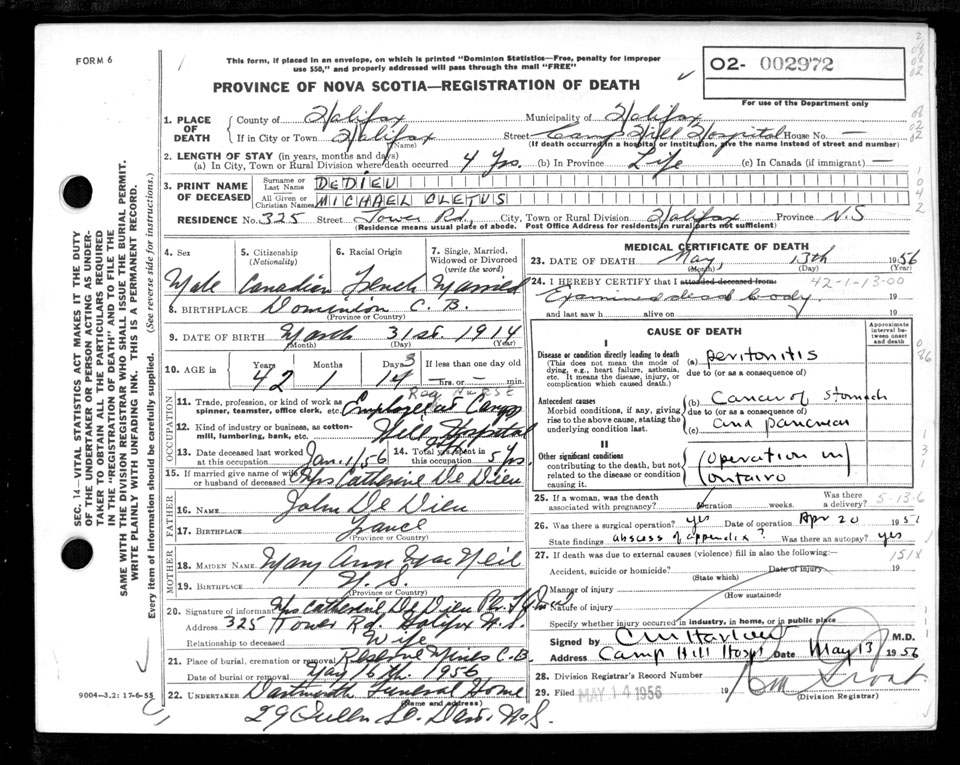 FORM 6
This form, if placed in an envelope, on which is printed "Dominion Statistics—Free, penalty for improper
use $50," and properly addressed will pass through the mail "FREE"
PROVINCE OF NOVA SCOTIA—REGISTRATION OF DEATH
02- 002972
For use of the Department only
SEC. 14—VITAL STATISTICS ACT MAKES IT THE DUTY
OF THE UNDERTAKER OR PERSON ACTING AS UNDER-
TAKER TO OBTAIN ALL THE PARTICULARS REQUIRED
IN THE "REGISTRATION OF DEATH" AND TO FILE THE
SAME WITH THE DIVISION REGISTRAR WHO SHALL ISSUE THE BURIAL PERMIT.
WRITE PLAINLY WITH UNFADING INK. THIS IS A PERMANENT RECORD.
Every item of information should be carefully supplied. (See reverse side for instructions.)
1. PLACE OF DEATH
County of Halifax Municipality of Halifax
If in City or Town Halifax Street Camp Hill Hospital House No. —
(Name) (If death occurred in a hospital or institution, give the name instead of street and number)
2. LENGTH OF STAY (in years, months and days)
(a) In City, Town or Rural Division where death occurred 4 Yrs. (b) In Province Life (c) In Canada (if immigrant) —
3. PRINT NAME OF DECEASED
Surname or Last Name DEDIEU
All Given or Christian Names MICHAEL CLETUS
RESIDENCE No. 325 Street Tower Rd. City, Town or Rural Division Halifax Province N.S
(Residence means usual place of abode. Post Office Address for residents in rural parts not sufficient)
4. Sex 5. Citizenship (Nationality) 6. Racial Origin 7. Single, Married, Widowed or Divorced (write the word)
Male Canadian French Married
8. BIRTHPLACE Dominion C.B.
(Province or Country)
9. DATE OF BIRTH March 31st. 1914
(Month) (Day) (Year)
10. AGE in Years Months Days If less than one day
42 1 14 — hrs. or — min.
Reg Nurse
11. Trade, profession, or kind of work as spinner, teamster, office clerk, etc. Employee at Camp
12. Kind of industry or business, as cotton-mill, lumbering, bank, etc. Hill Hospital
13. Date deceased last worked at this occupation Jan. 1/56 14. Total yrs. spent in this occupation 5 yrs.
OCCUPATION
15. If married give name of wife or husband of deceased Mrs Catherine De Dieu
FATHER
16. Name John De Dieu
17. Birthplace France
(Province or Country)
MOTHER
18. Maiden Name Mary Ann Mac Neil
19. Birthplace N.S.
(Province or Country)
20. Signature of informant Mrs Catherine De Dieu Per
Address 325 Tower Rd. Halifax N.S.
Relationship to deceased Wife
21. Place of burial, cremation or removal Reserve Mines C.B.
Date of burial or removal May 16th. 1956
22. UNDERTAKER Dartmouth Funeral Home
(Name and address)
29 Queen St. Dart. N.S.
9004—3.2: 17-6-55
MEDICAL CERTIFICATE OF DEATH
23. DATE OF DEATH May, 13th 1956
(Month) (Day) (Year)
24. I HEREBY CERTIFY that I attended deceased from: 42-1-13-00
Examined dead body 19
and last saw h alive on 19
CAUSE OF DEATH
Approximate interval between onset and death
I
Disease or condition directly leading to death
(This does not mean the mode of dying, e.g., heart failure, asthenia, etc. It means the disease, injury, or complication which caused death.)
(a) peritonitis
due to (or as a consequence of)
Antecedent causes
Morbid conditions, if any, giving rise to the above cause, stating the underlying condition last.
(b) Cancer of Stomach
due to (or as a consequence of)
(c) and pancreas
II
Other significant conditions
contributing to the death, but not related to the disease or condition causing it.
(operation in
ontario
25. If a woman, was the death associated with pregnancy? Duration weeks. Was there a delivery?
5-13-6
26. Was there a surgical operation? yes Date of operation Apr 20 195
State findings abscess of appendix? Was there an autopsy? yes
27. If death was due to external causes (violence) fill in also the following:—
151X
Accident, suicide or homicide? Date of injury
(State which)
Manner of injury
(How sustained)
Nature of injury
Specify whether injury occurred in industry, in home, or in public place
Signed by M.D.
Address Camp Hill Hospt Date May 13 1956
28. Division Registrar's Record Number
29. Filed MAY 14 1956 19
(Division Registrar)